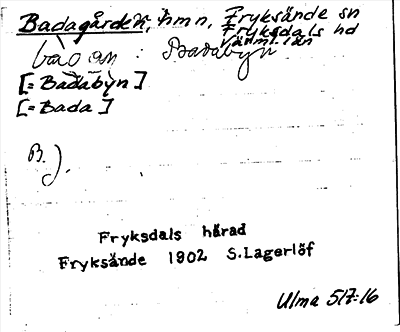 Badagården, hmn, Fryksände sn
Fryksdals hd
Värml. län
: Badabyn
[= Badabyn]
[= Bada]
B.J.
Fryksdals härad
Fryksände 1902 S.Lagerlöf
Ulma 517:16